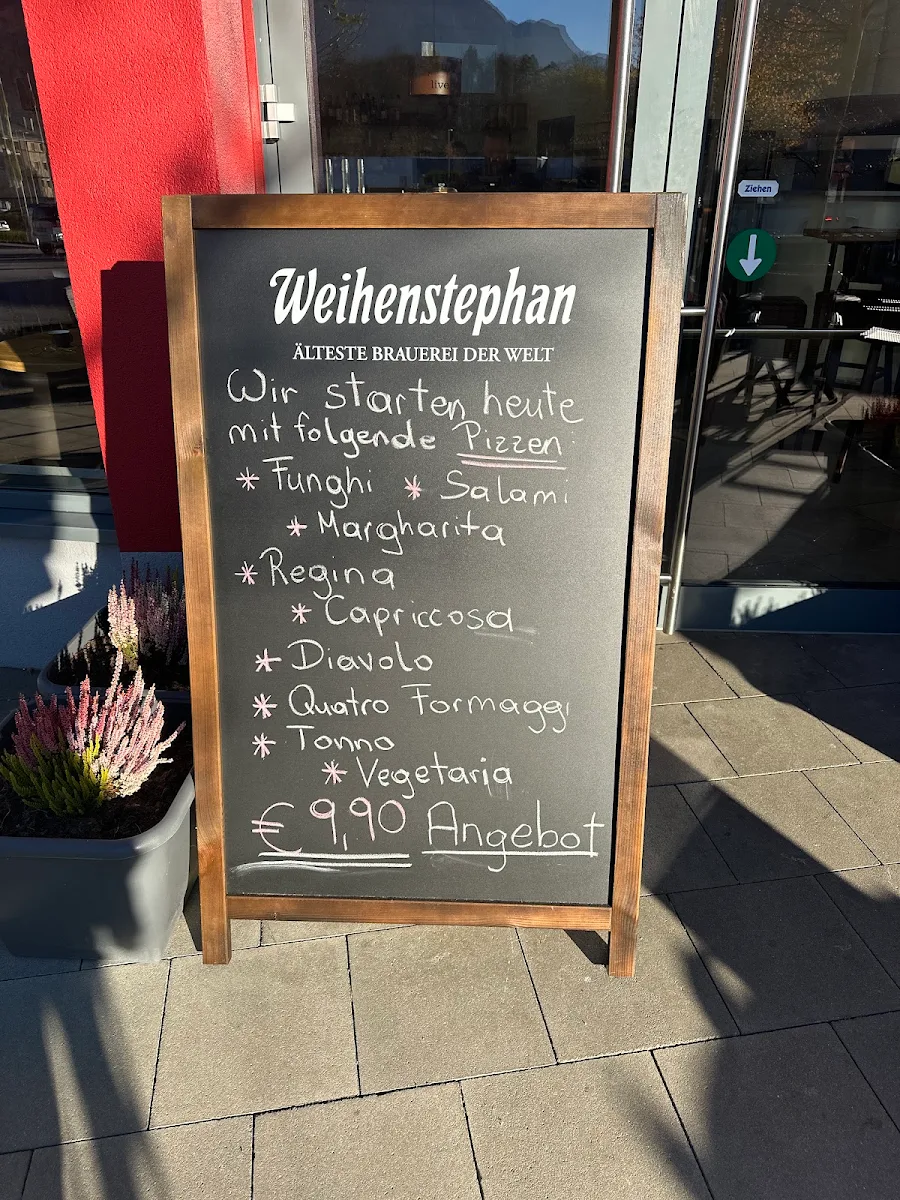 live
Ziehen
Weihenstephan
ÄLTESTE BRAUEREI DER WELT
Wir starten heute
mit folgende Pizzen:
* Funghi * Salami
* Margharita
* Regina
* Capriccosa
* Diavolo
* Quatro Formaggi
* Tonno
* Vegetaria
€ 9,90 Angebot